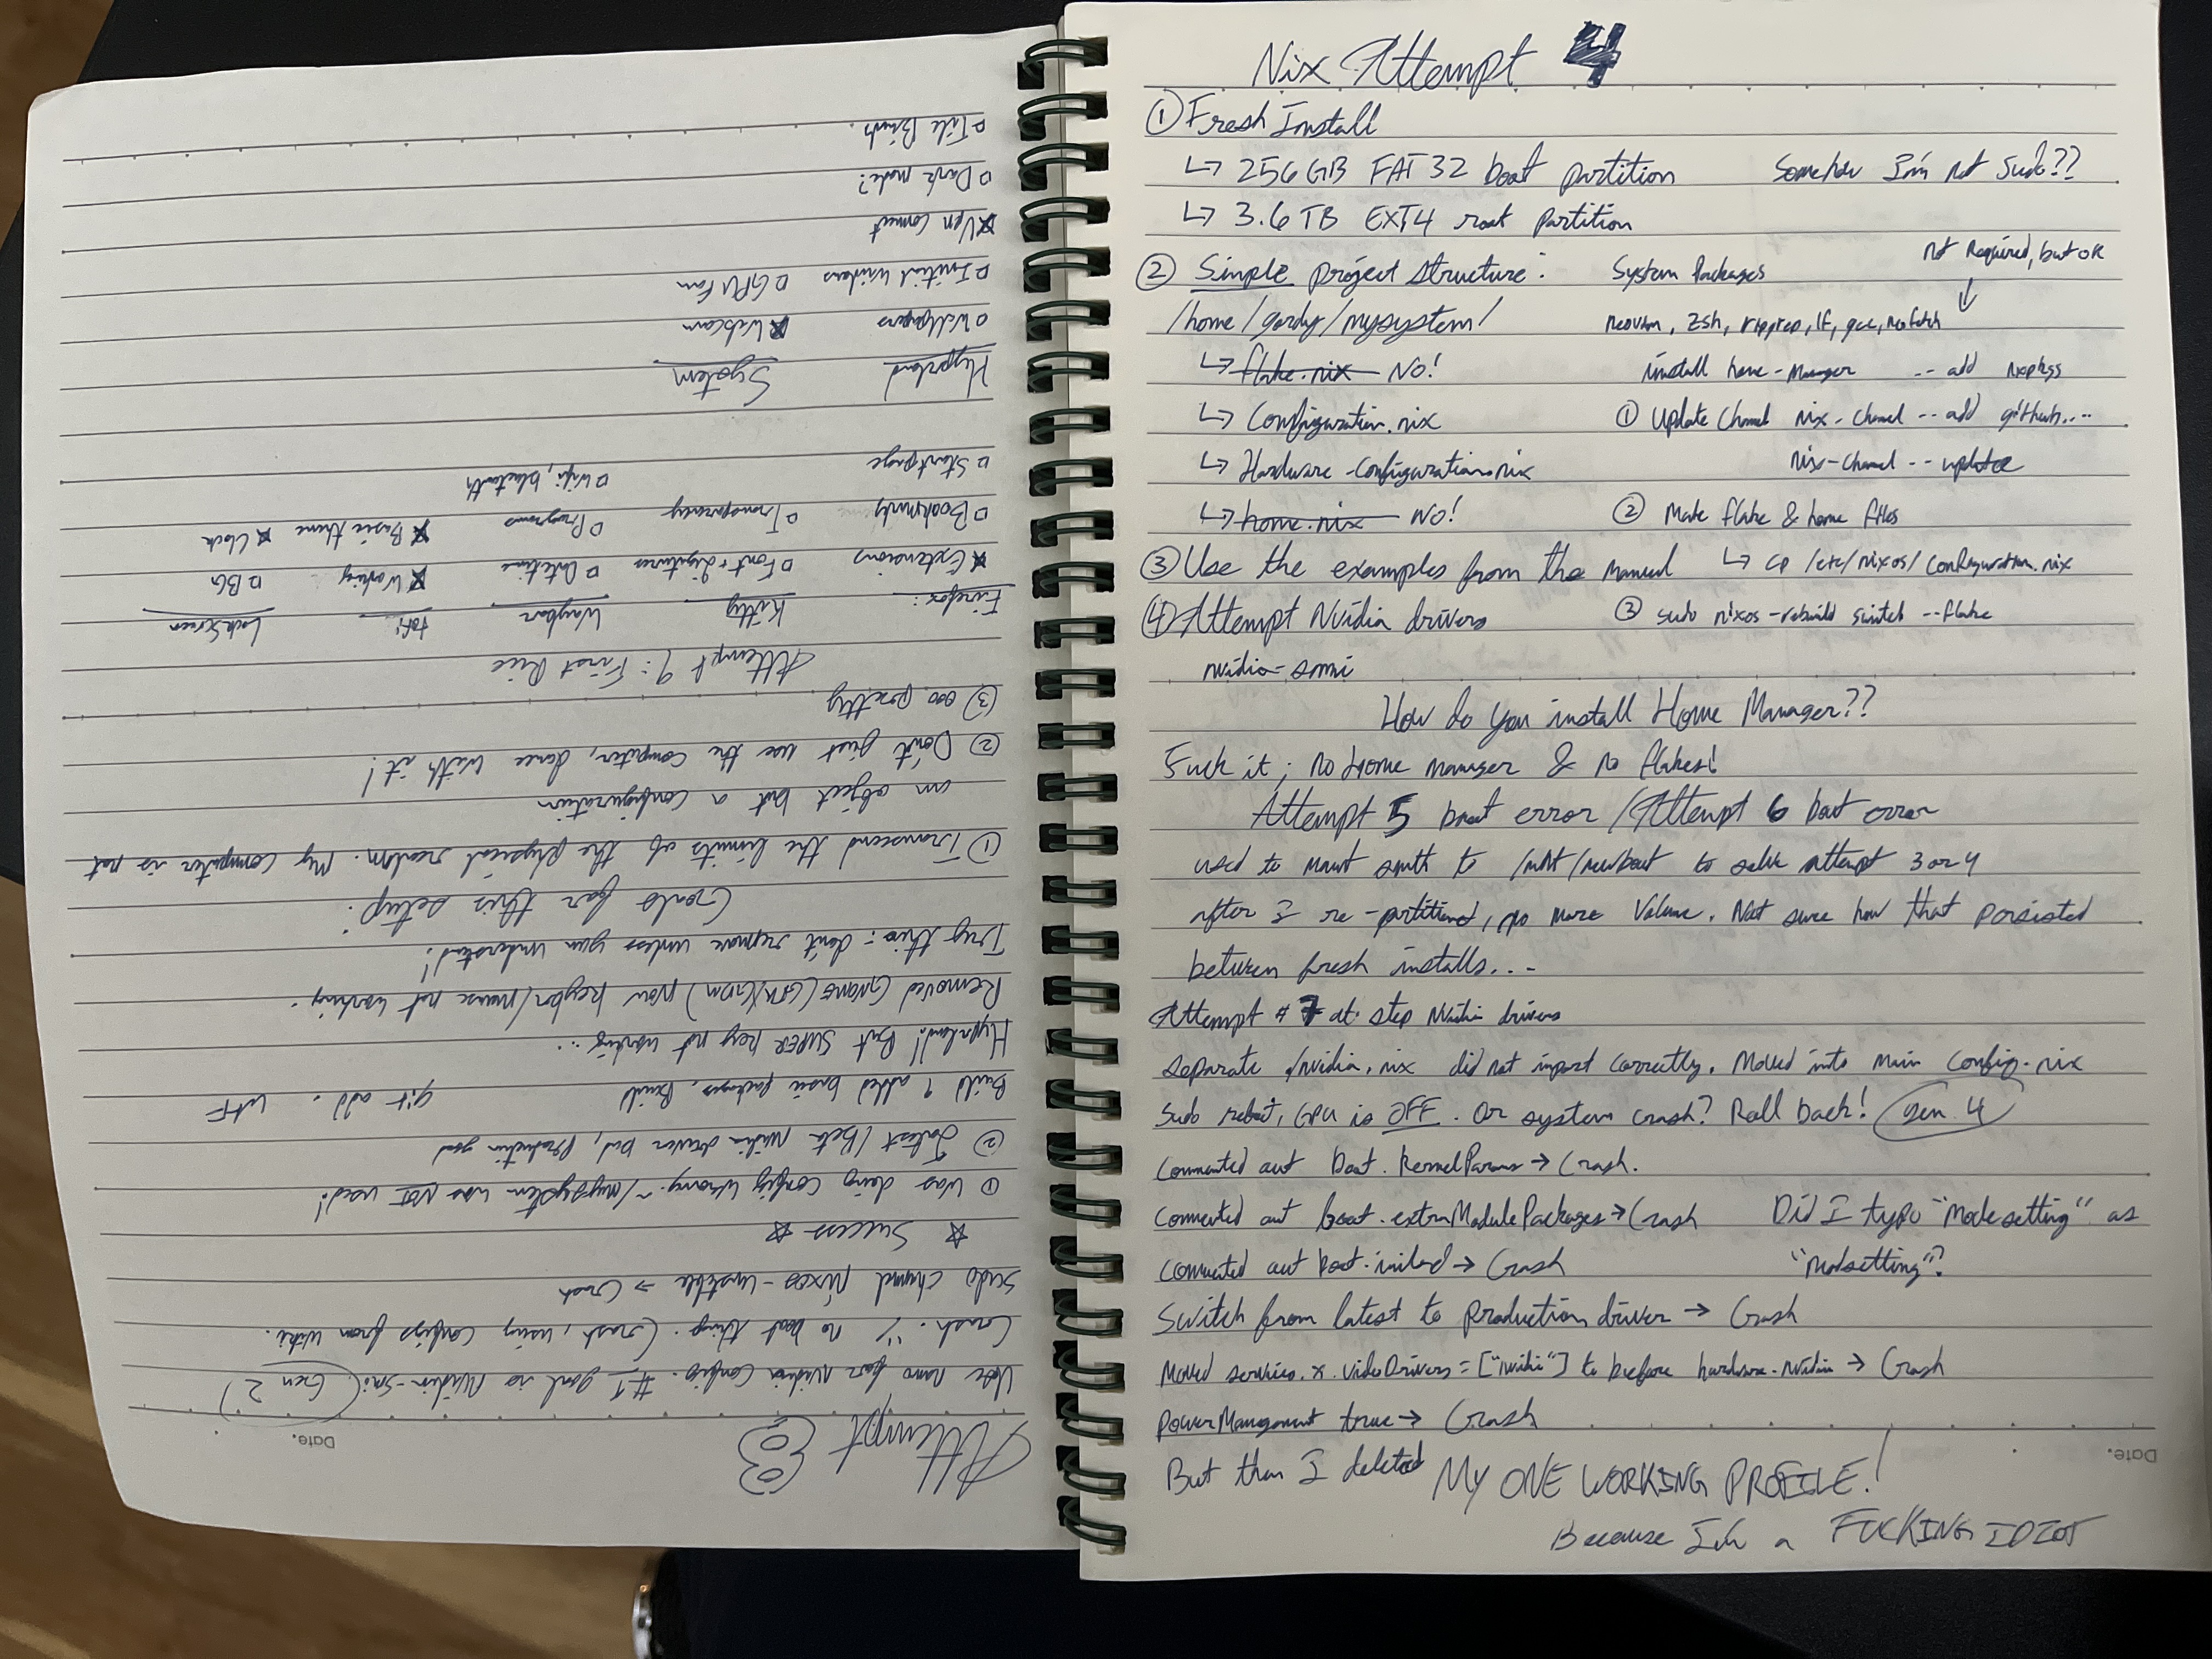 Nix Attempt 4
① Fresh Install
↳ 256 GB FAT 32 boot partition Somehow I'm not Sudo??
↳ 3.6 TB EXT4 root partition
② Simple project structure: System Packages not Required, but ok
/home/gordy/mysystem/ neovim, zsh, ripgrep, lf, gcc, neofetch
↳ flake.nix No! install home-manager -- add nixpkgs
↳ Configuration.nix ① Update Channel nix-channel --add github....
↳ Hardware-Configuration.nix nix-channel --update
↳ home.nix No! ② Make flake & home files
③ Use the examples from the manual ↳ cp /etc/nixos/configuration.nix
④ Attempt Nvidia drivers ③ sudo nixos-rebuild switch --flake
nvidia-smi
How do you install Home Manager??
Fuck it; no Home manager & no flakes!
Attempt 5 boot error / Attempt 6 boot error
used to mount to /mnt/newboot to solve attempt 3 or 4
after I re-partitioned, no more Volume. Not sure how that persisted
between fresh installs...
Attempt #7 at step Nvidia drivers
separate /nvidia.nix did not import correctly. Moved into main config.nix
Sudo reboot, GPU is OFF. Or system crash? Roll back! gen 4
commented out boot.kernelParams → Crash.
commented out boot.extraModulePackages → Crash Did I typo "Modesetting" as
commented out boot.initrd → Crash "Modsetting"?
Switch from latest to production driver → Crash
Moved services.x.videoDrivers = ["nvidia"] to before hardware.nvidia → Crash
powerManagement true → Crash
Date.
But then I deleted MY ONE WORKING PROFILE!
Because I'm a FUCKING IDIOT
Date.
Attempt 8
Use nano for Nvidia Config. #1 goal is Nvidia-Smi (Gen 2)
Crash. no boot thing. Crash, using configs from wiki.
Sudo channel Nixos-unstable → Crash
☆ Success ☆
① Was doing config wrong. ~/mysystem was NOT used!
② Latest/Beta Nvidia driver bad, Production good
Build 9 added basic packages. Build git add . WTF
Hyprland! But SUPER key not working...
Removed GNOME (GTK/GDM) Now keybr/mouse not working.
Try this: don't remove unless you understand!
Goals for this setup:
① Transcend the limits of the physical realm. My computer is not
an object but a configuration
② Don't just use the computer, dance with it!
③ ooo pretty
Attempt 9: First Rice
Firefox: Kitty Waybar tofi LockScreen
Extensions Font + Ligatures Datetime Working BG
Bookmarks Transparency Programs Basic theme Clock
Startpage Wifi, bluetooth
Hyprland System
Wallpapers Webcam
Initial windows GPU Fan
Vpn connect
Dark mode?
Tile Binds.